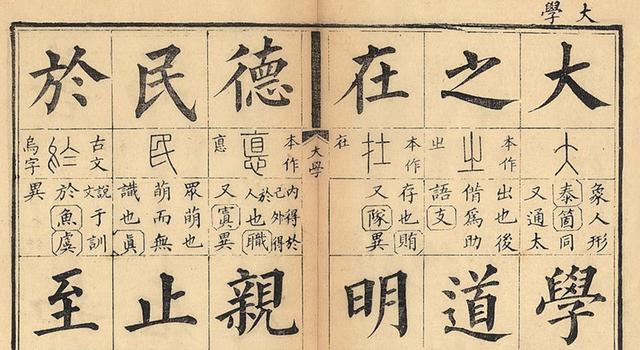 大學
大
象人形
泰箇同
又通太
學
之
本作㞢
出也後
偕爲助
語支
道
在
本作在
存也賄
又隊異
明
大學
德
本作悳
內得於
己外得
於人也職
又寘異
親
民
眾萌也
萌而無
識也眞
止
於
古文烏字
說文于訓
於魚虞
異
至